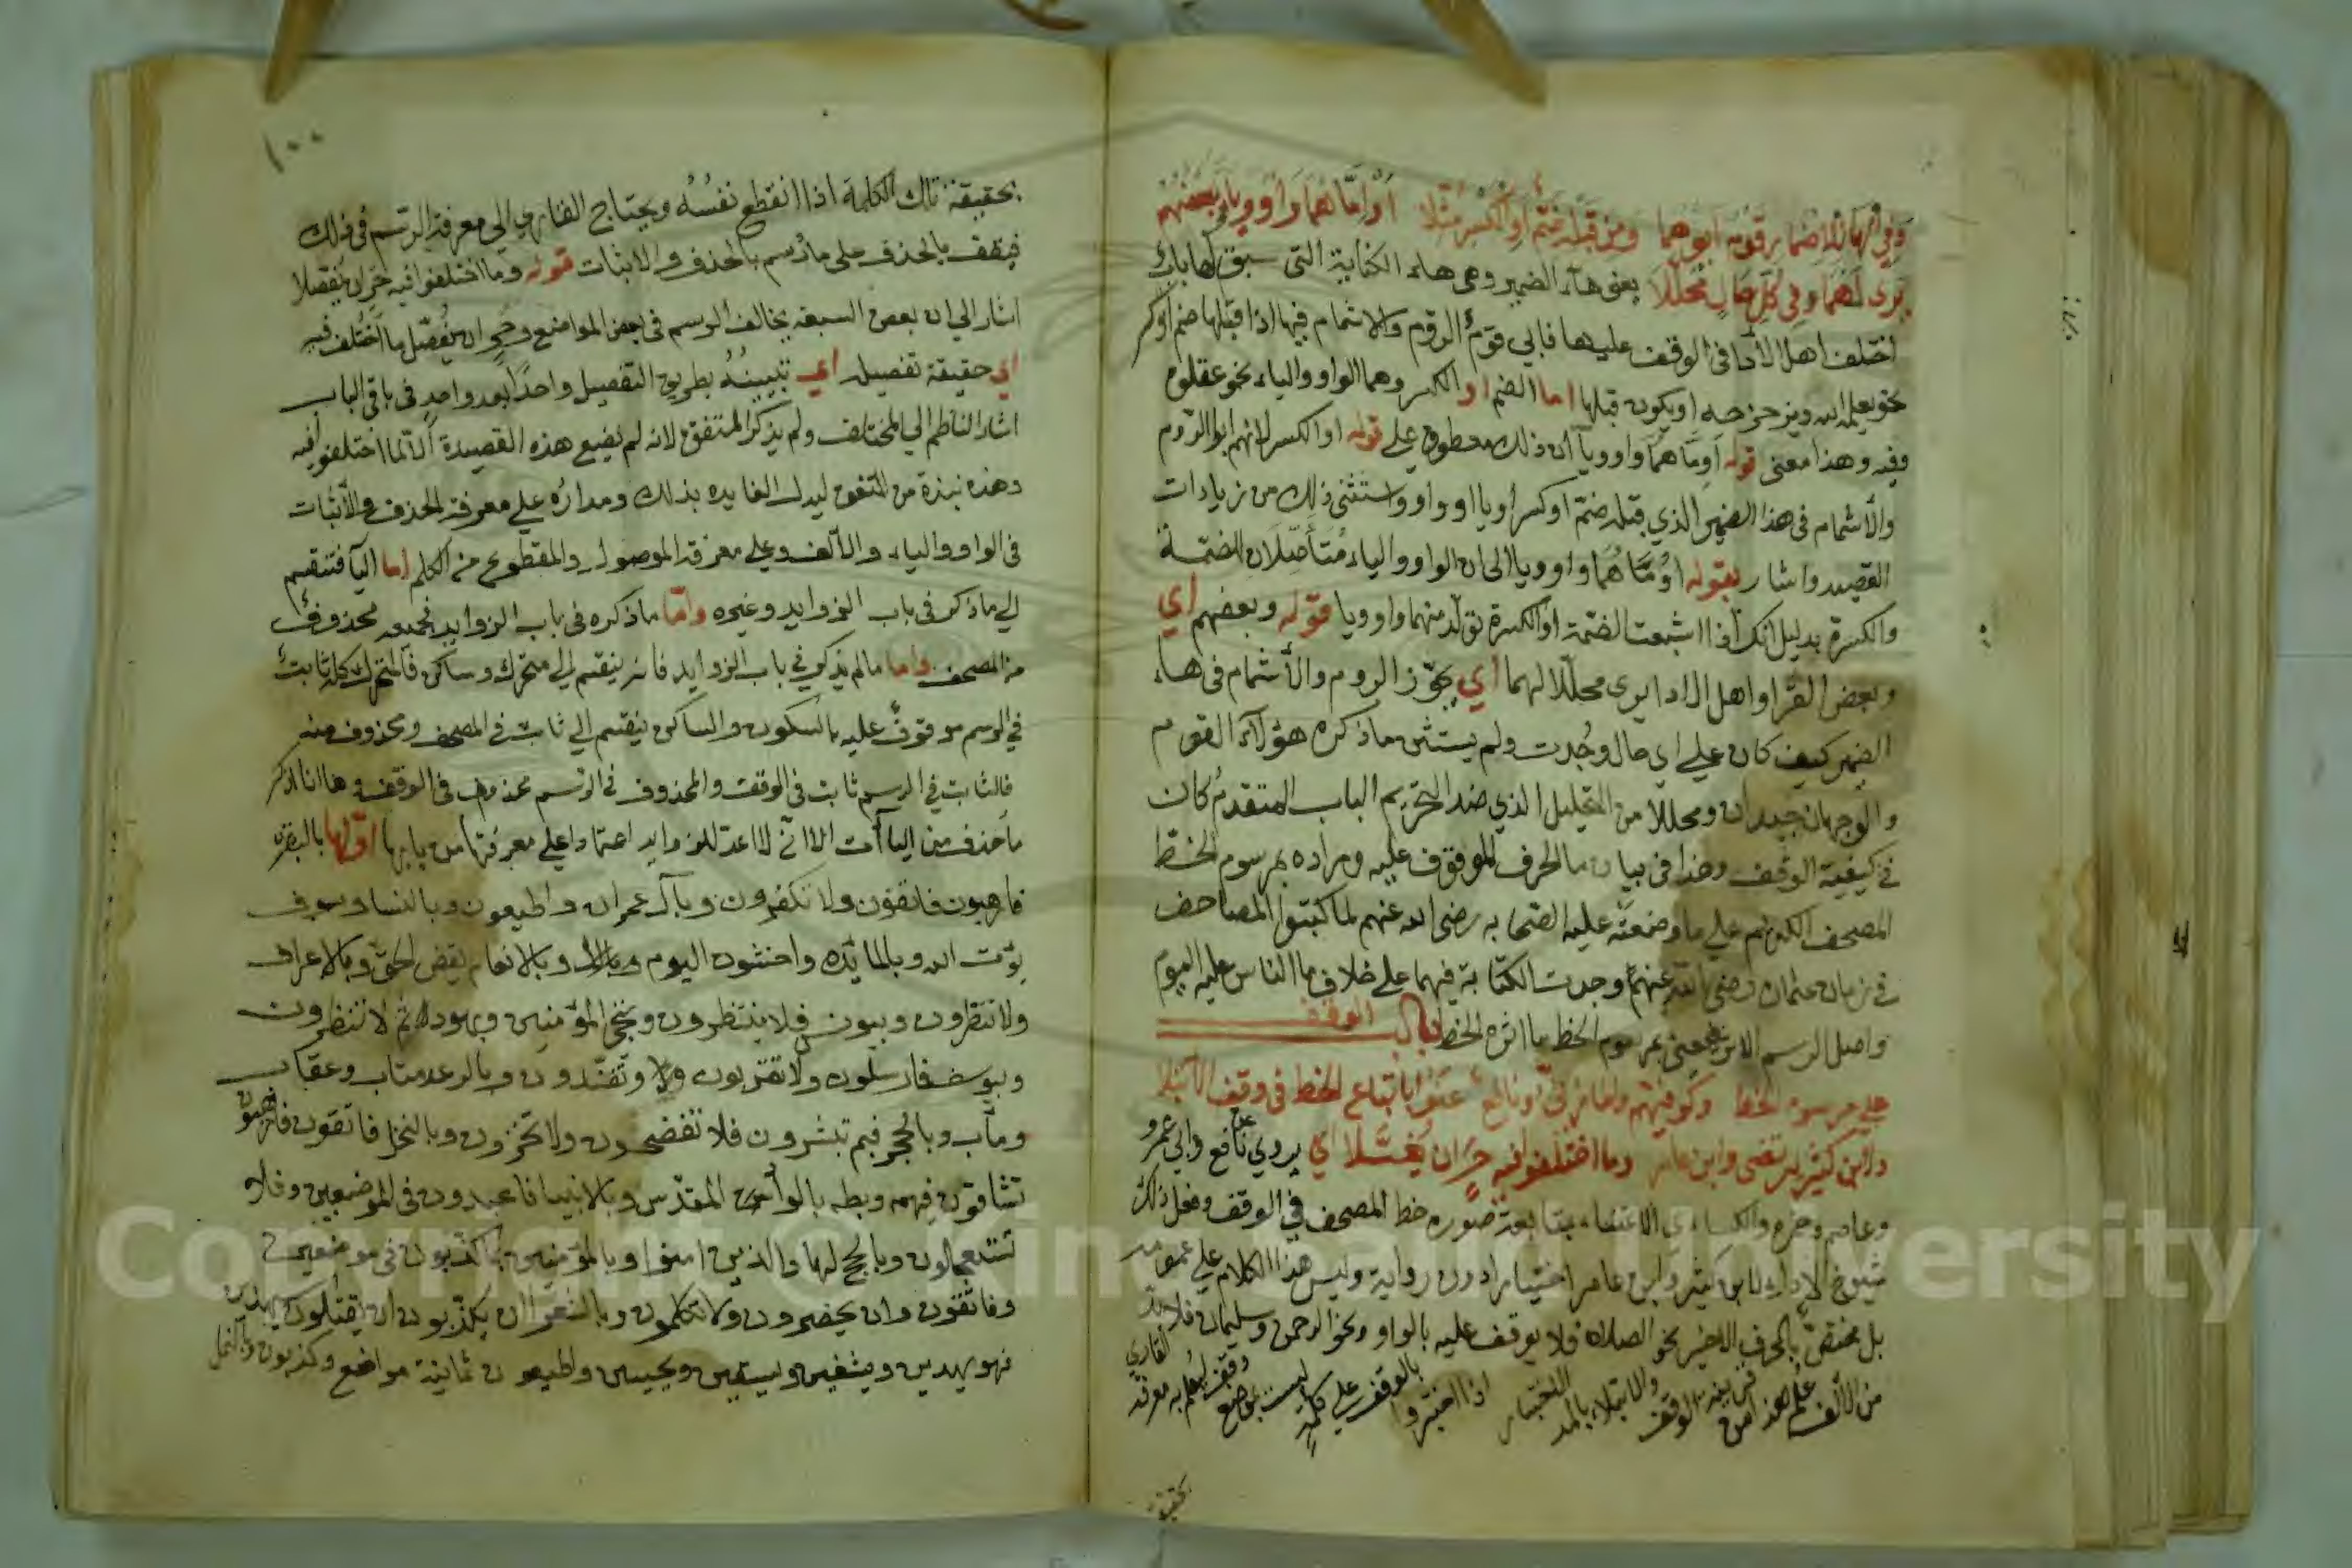 وفي الهاء للاضمار قوم ابوهما ومن قبله ضم او الكسر مثلا اَوْ امَّاهما واو وياء وبعضهم
يرى لهما في كل حال محللا يعني هاء الضمير وهي هاء الكناية التي سبق لها باب
اختلف اهل الادا في الوقف عليها فابي قوم الروم والاشمام فيها اذا قبلها ضم او كسر
نحو يعلمه الله وبمزحزحه او يكون قبلها اما الضم او الكسر وهما الواو والياء نحو عقلوه
وفيه وهذا معنى قوله اَوِمَّاهُما واو ويا ان ذلك معطوف على قوله او الكسر لانهم ابوا الروم
والاشمام في هذا الضمير الذي قبله ضم او كسر او يا او واو واستثنى ذلك من زيادات
القصيد واشار بقوله اوُمَّاهُما واو ويا الى ان الواو والياء مُتاَصّلان للضمة
والكسرة بدليل انك اذا اشبعت الضمة او الكسرة تولّد منهما واو ويا قوله وبعضهم اي
وبعض القرا واهل الادا يرى محللا لهما اي يجوّز الروم والاشمام في هاء
الضمير كيف كان على اي حال وُجدت ولم يستثن ما ذكره هؤلاء القوم
والوجهان جيدان ومحللا من التحليل الذي ضد التحريم الباب المتقدم كان
في كيفية الوقف وهذا في بيان ما الحرف الموقوف عليه ومراده بمرسوم الخط
المصحف الكريم على ما وضعته عليه الصحابه رضى الله عنهم لما كتبوا المصاحف
في زمان عثمان رضى الله عنهم وجدت الكتابة فيهما على خلاف ما الناس عليه اليوم
واصل الرسم الاثر فمعنى مرسوم الخط ما اثره الخط باب الوقف
على مرسوم الخط وكوفيهم والمازني ونافع عنوا باتباع الخط في وقف الابتلا
ولابن كثير يرتضى وابن عامر وما اختلفوا فيه حَرٍ ان يُفَصَّلا اي يروي عن نافع وابي عمرو
وعاصم وحمزه والكسائي الاعتناء بمتابعة صورة خط المصحف في الوقف وفعل ذلك
شيوخ الاداء لابن كثير وابن عامر اختيارا دون رواية وليس هذا الكلام على عمومه
بل يختصّ بالحرف الاخير نحو الصلاة فلا يوقف عليه بالواو ونحو الرحمن وسليمان فلا بد
من الالف علم هذا من قرينة الوقف والابتلاء بالمد الاختبار اذا اختبروا بالوقف على كلمةٍ ليست بموضع وقف ليُعلم به معرفة القاري
بحقيقة
١٠٠
بحقيقة تلك الكلمة اذا انقطع نفسُه ويحتاج القاري الى معرفة الرسم في ذلك
فيقف بالحذف على ما رُسم بالحذف والاثبات قوله وما اختلفوا فيه حَرٍ ان يُفصلا
اشار الي ان بعض السبعة يخالف الرسم في بعض المواضع وحَرٍ ان يُفصّل ما اختُلف فيه
اي حقيقة تفصيله اي تبيينُهُ بطريق التفصيل واحدًا بعد واحدٍ في باقي الباب
اشار الناظم الي المختلف ولم يذكر المتفق لانه لم يضع هذه القصيدة الّا لما اختلفوا فيه
وهذه نبذة من المتفق ليدل الفايده بذلك ومدارُه على معرفة الحذف والاثبات
في الواو والياء والالف وعلى معرفة الموصول والمقطوع من الكلم اما اليآ فتنقسم
الي ما ذكر في باب الزوايد وغيره وامّا ما ذكره في باب الزوايد فجميعه محذوف
من المصحف واما ما لم يذكر في باب الزوايد فانه ينقسم الي متحرك وساكن فالمتحرك كله ثابت
في الرسم موقوف عليه بالسكون والساكن ينقسم الي ثابت في المصحف ومحذوف منه
فالثابت في الرسم ثابت في الوقف والمحذوف في الرسم محذوف في الوقف وها انا اذكر
ما حذف من الياآت الا اني لا اعد للزوايد اعتمادا على معرفتها من بابها اوّلها بالبقره
فارهبون فاتقون ولا تكفرون وبآل عمران واطيعون وبالنسا وسوف
يؤت الله وبالمائده واخشون اليوم وبالا وبالانعام يقض الحقّ وبالاعراف
ولا تنظرون وبيونس فلا ينتظرون وننج المؤمنين وبهود ثم لا تنظرون
وبيوسف فارسلون ولا تقربون ولا وتفنّدون وبالرعد متاب وعقاب
ومآب وبالحجر فبم تبشرون فلا تفضحون ولا تخزون وبالنحل فاتقون فارهبون
تشاقون فيهم وبطه بالوادي المقدّس وبالانبيا فاعبدون في الموضعين وفلا
تستعجلون وبالحج لهاد الذين امنوا وبالمؤمنين بما كذّبون في موضعين
وفاتقون وان يحضرون ولا تكلمون وبالشعرا ان يكذّبون ان يقتلون سيهدين
فهو يهدين ويشفين ويسقين ويحيين واطيعون ثمانية مواضع وكذبون وبالنمل
Copyright © King Saud University